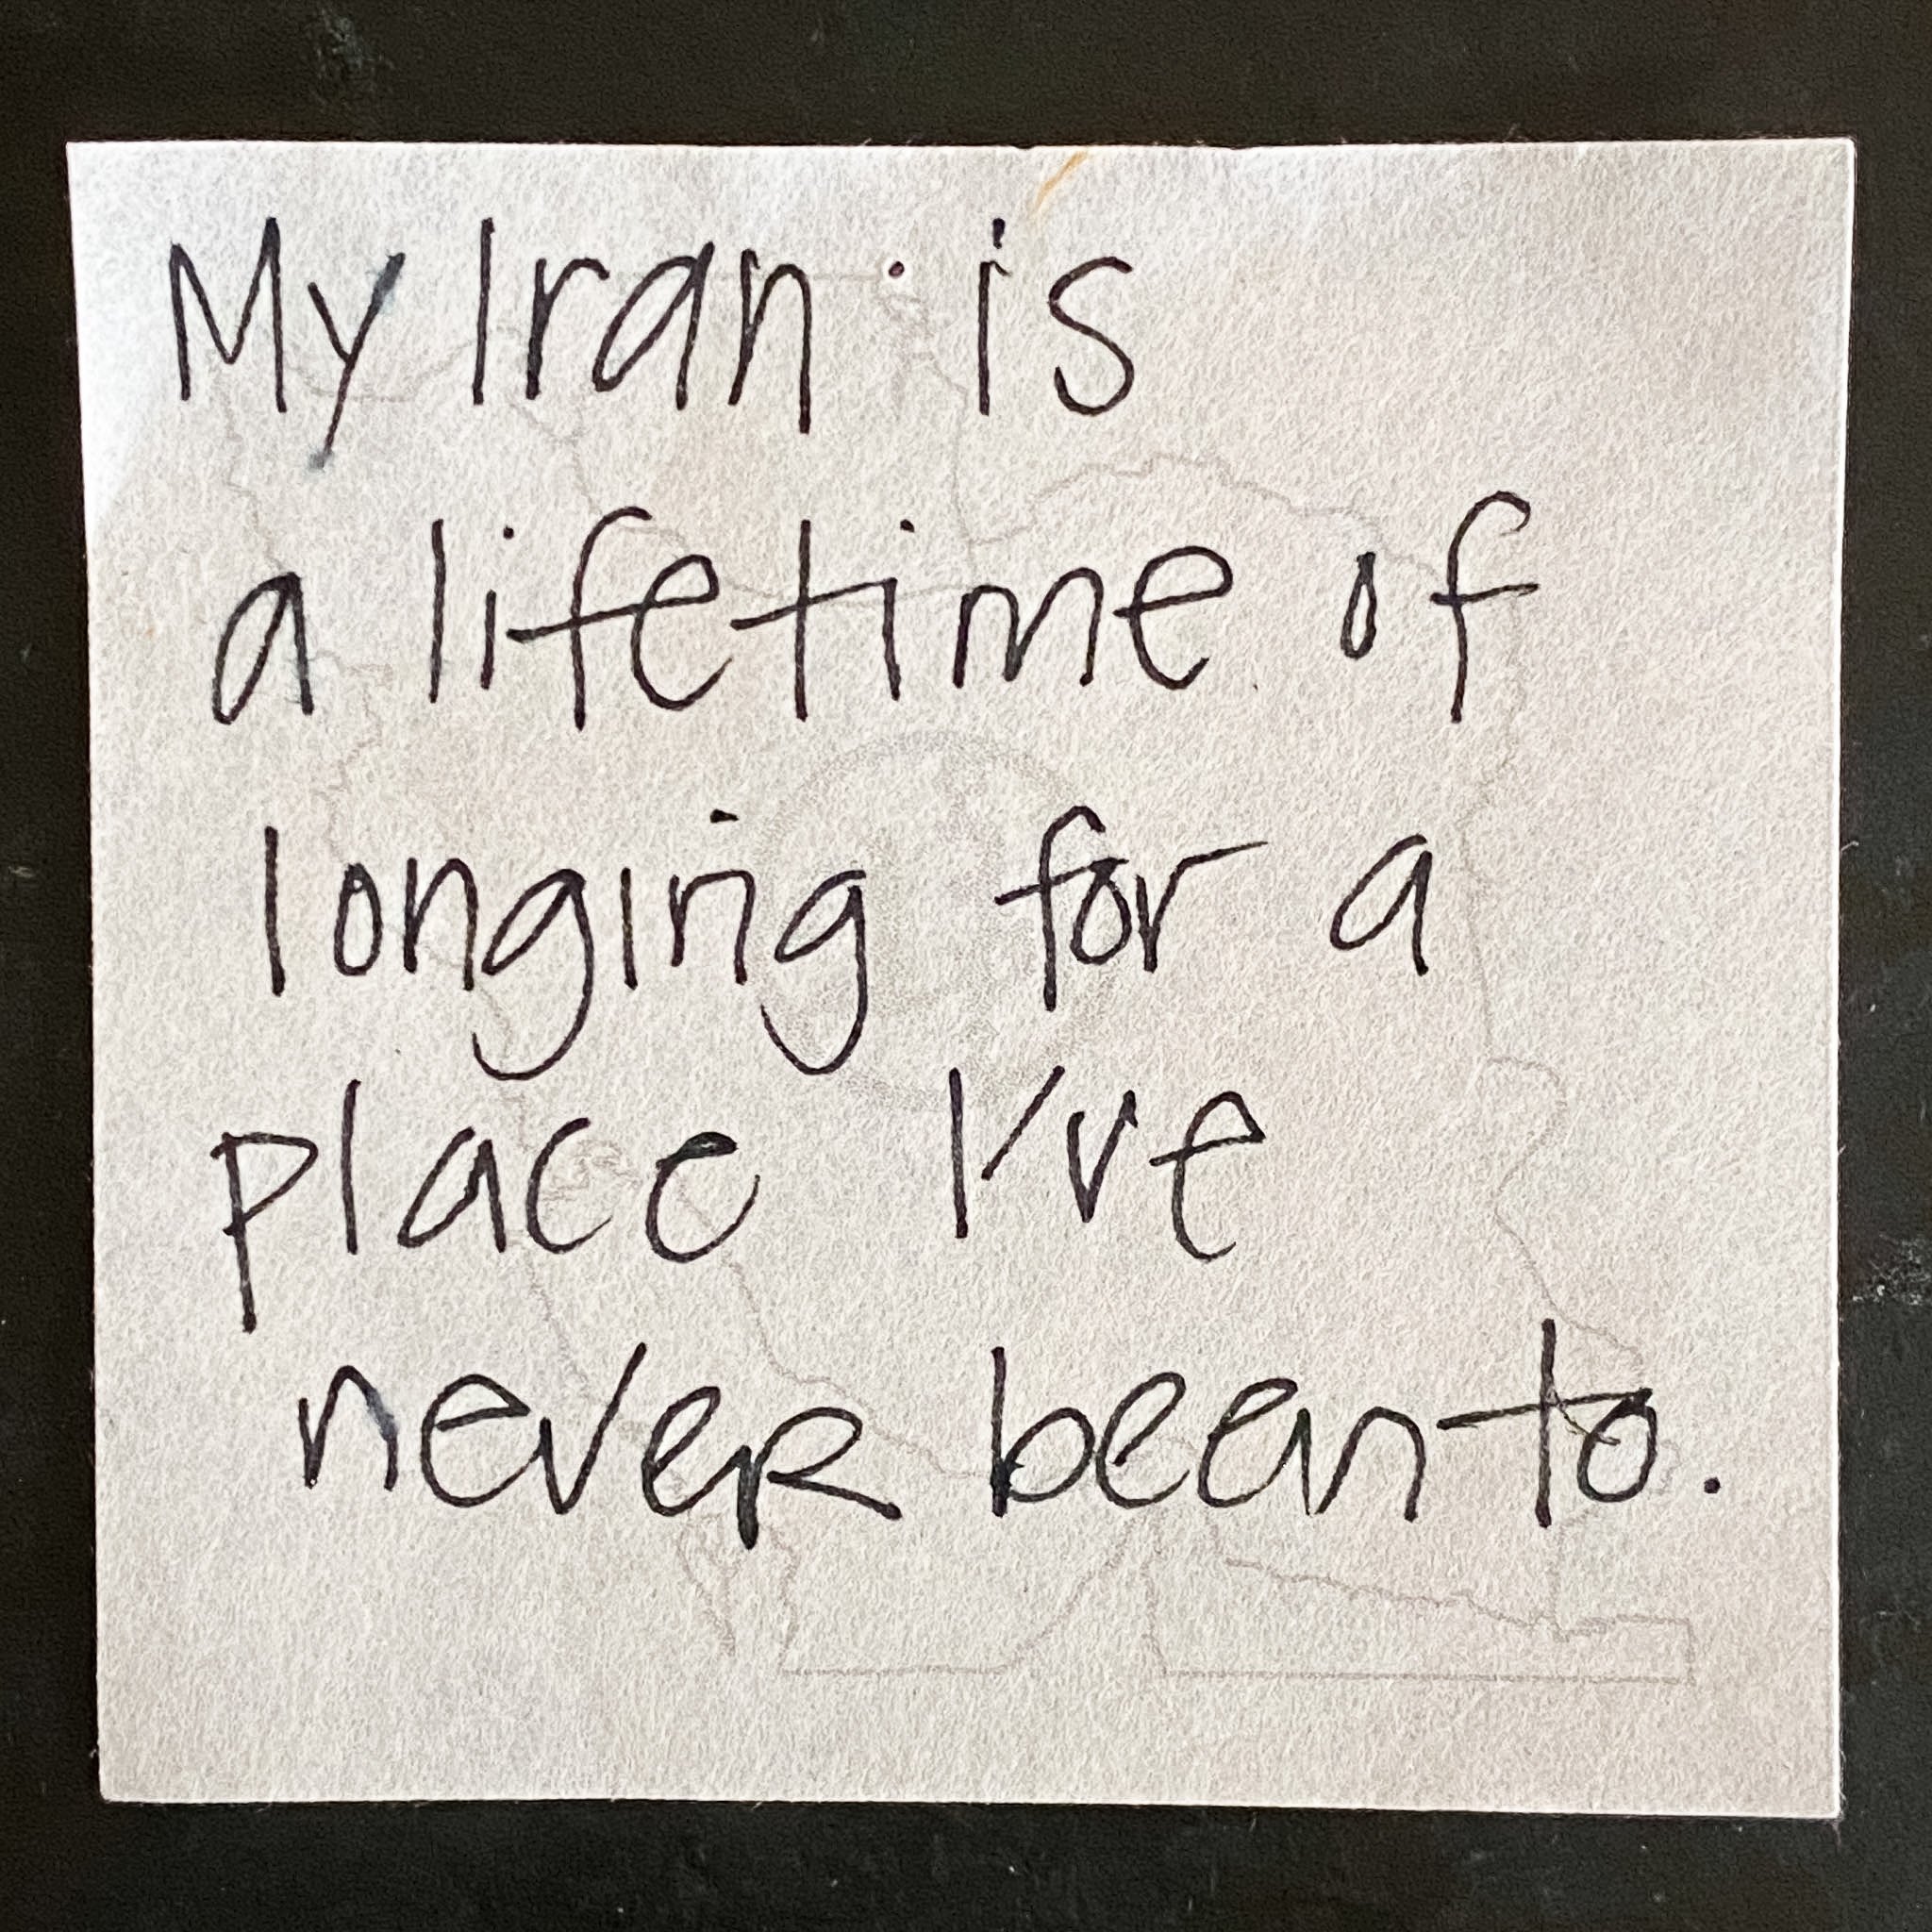 My Iran is
a lifetime of
longing for a
place I've
never been to.